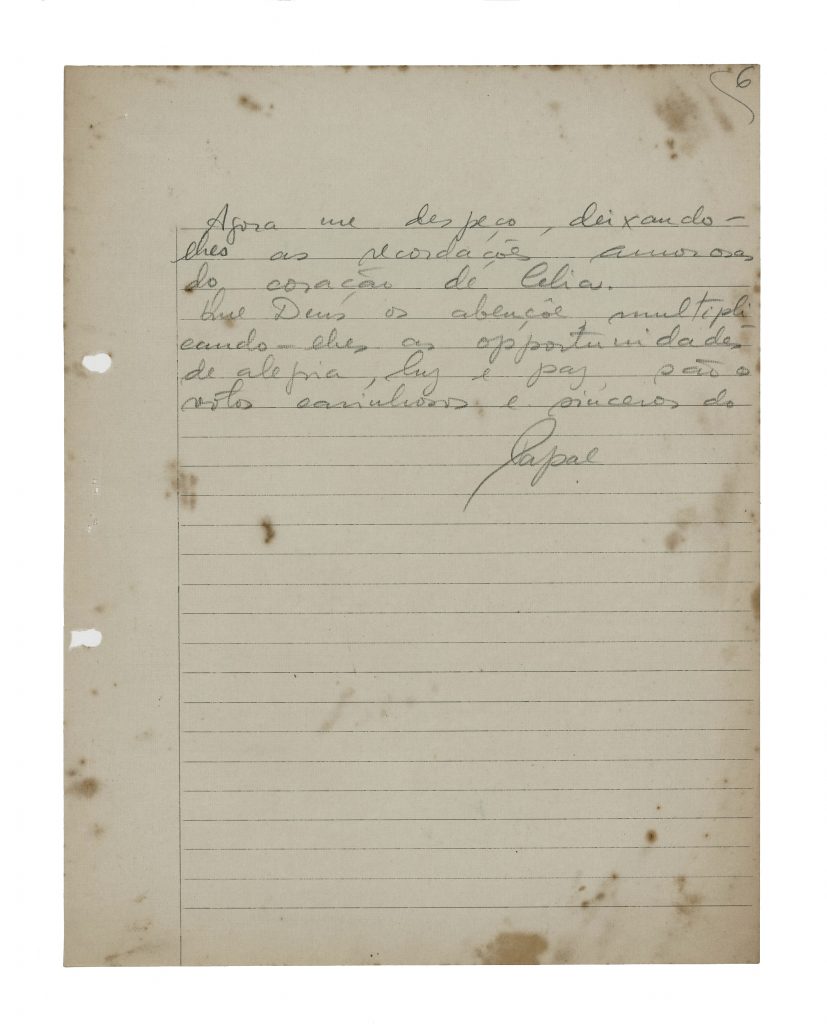 6
Agora me despeço, deixando-
lhes as recordações amorosas
do coração de Celia.
Que Deus os abençôe, multipli
cando-lhes as opportunidades
de alegria, luz e paz são o
votos carinhosos e sinceros do
Papae